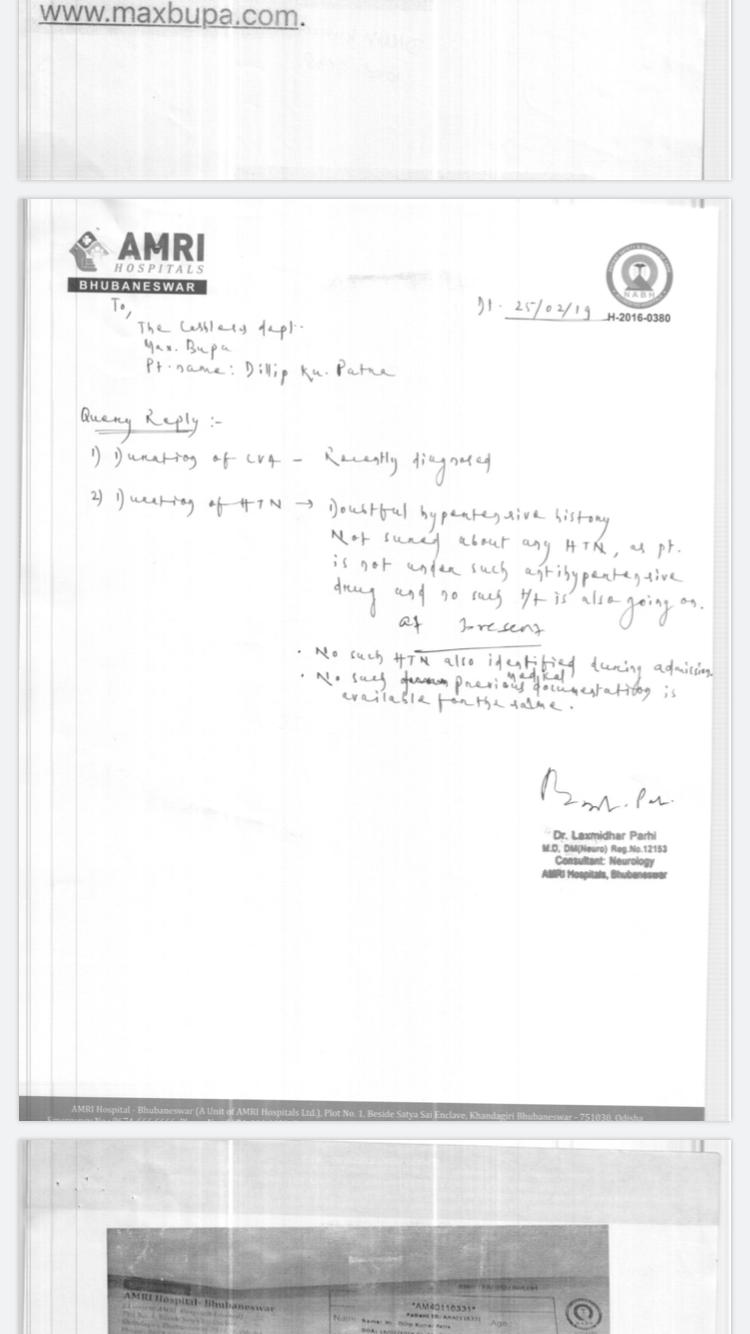 www.maxbupa.com.
AMRI
HOSPITALS
BHUBANESWAR
NABH
H-2016-0380
Dt - 25/02/19
To,
The Cashless dept.
Max. Bupa
Pt. name: Dillip Ku. Patra
Query Reply :-
1) Duration of CVA - Recently diagnosed
2) Duration of HTN → Doubtful hypertensive history
Not sured about any HTN, as pt.
is not under such antihypertensive
drug and no such t/t is also going on.
at present
• No such HTN also identified during admission
• No such previous medical documentation is
available for the same.
Dr. Laxmidhar Parhi
M.D, DM(Neuro) Reg.No.12153
Consultant: Neurology
AMRI Hospitals, Bhubaneswar
AMRI Hospital - Bhubaneswar (A Unit of AMRI Hospitals Ltd.), Plot No. 1, Beside Satya Sai Enclave, Khandagiri Bhubaneswar - 751030, Odisha
AMRI Hospital- Bhubaneswar
*AM40110331*
Name: Mr. Dillip Kumar Patra
Age: